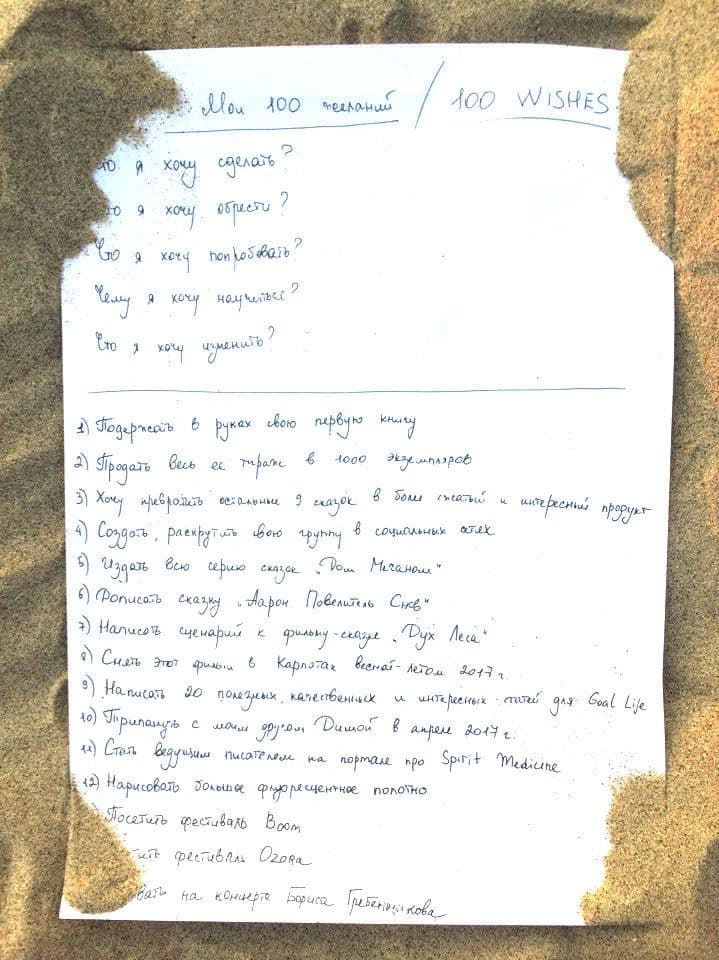 Мои 100 желаний / 100 WISHES
то я хочу сделать?
то я хочу обрести?
Что я хочу попробовать?
Чему я хочу научиться?
Что я хочу изменить?
1) Подержать в руках свою первую книгу
2) Продать весь ее тираж в 1000 экземпляров
3) Хочу превратить остальные 9 сказок в более сжатый и интересный продукт
4) Создать, раскрутить свою группу в социальных сетях
5) Издать всю серию сказок „Дом Меганом"
6) Дописать сказку „Аарон Повелитель Снов"
7) Написать сценарий к фильму-сказке „Дух Леса"
8) Снять этот фильм в Карпатах весной-летом 2017 г.
9) Написать 20 полезных, качественных и интересных статей для Goal Life
10) Трипануть с моим другом Димой в апреле 2017 г.
11) Стать ведущим писателем на портале про Spirit Medicine
12) Нарисовать большое флуоресцентное полотно
) Посетить фестиваль Boom
тить фестиваль Ozora
вать на концерте Бориса Гребенщикова